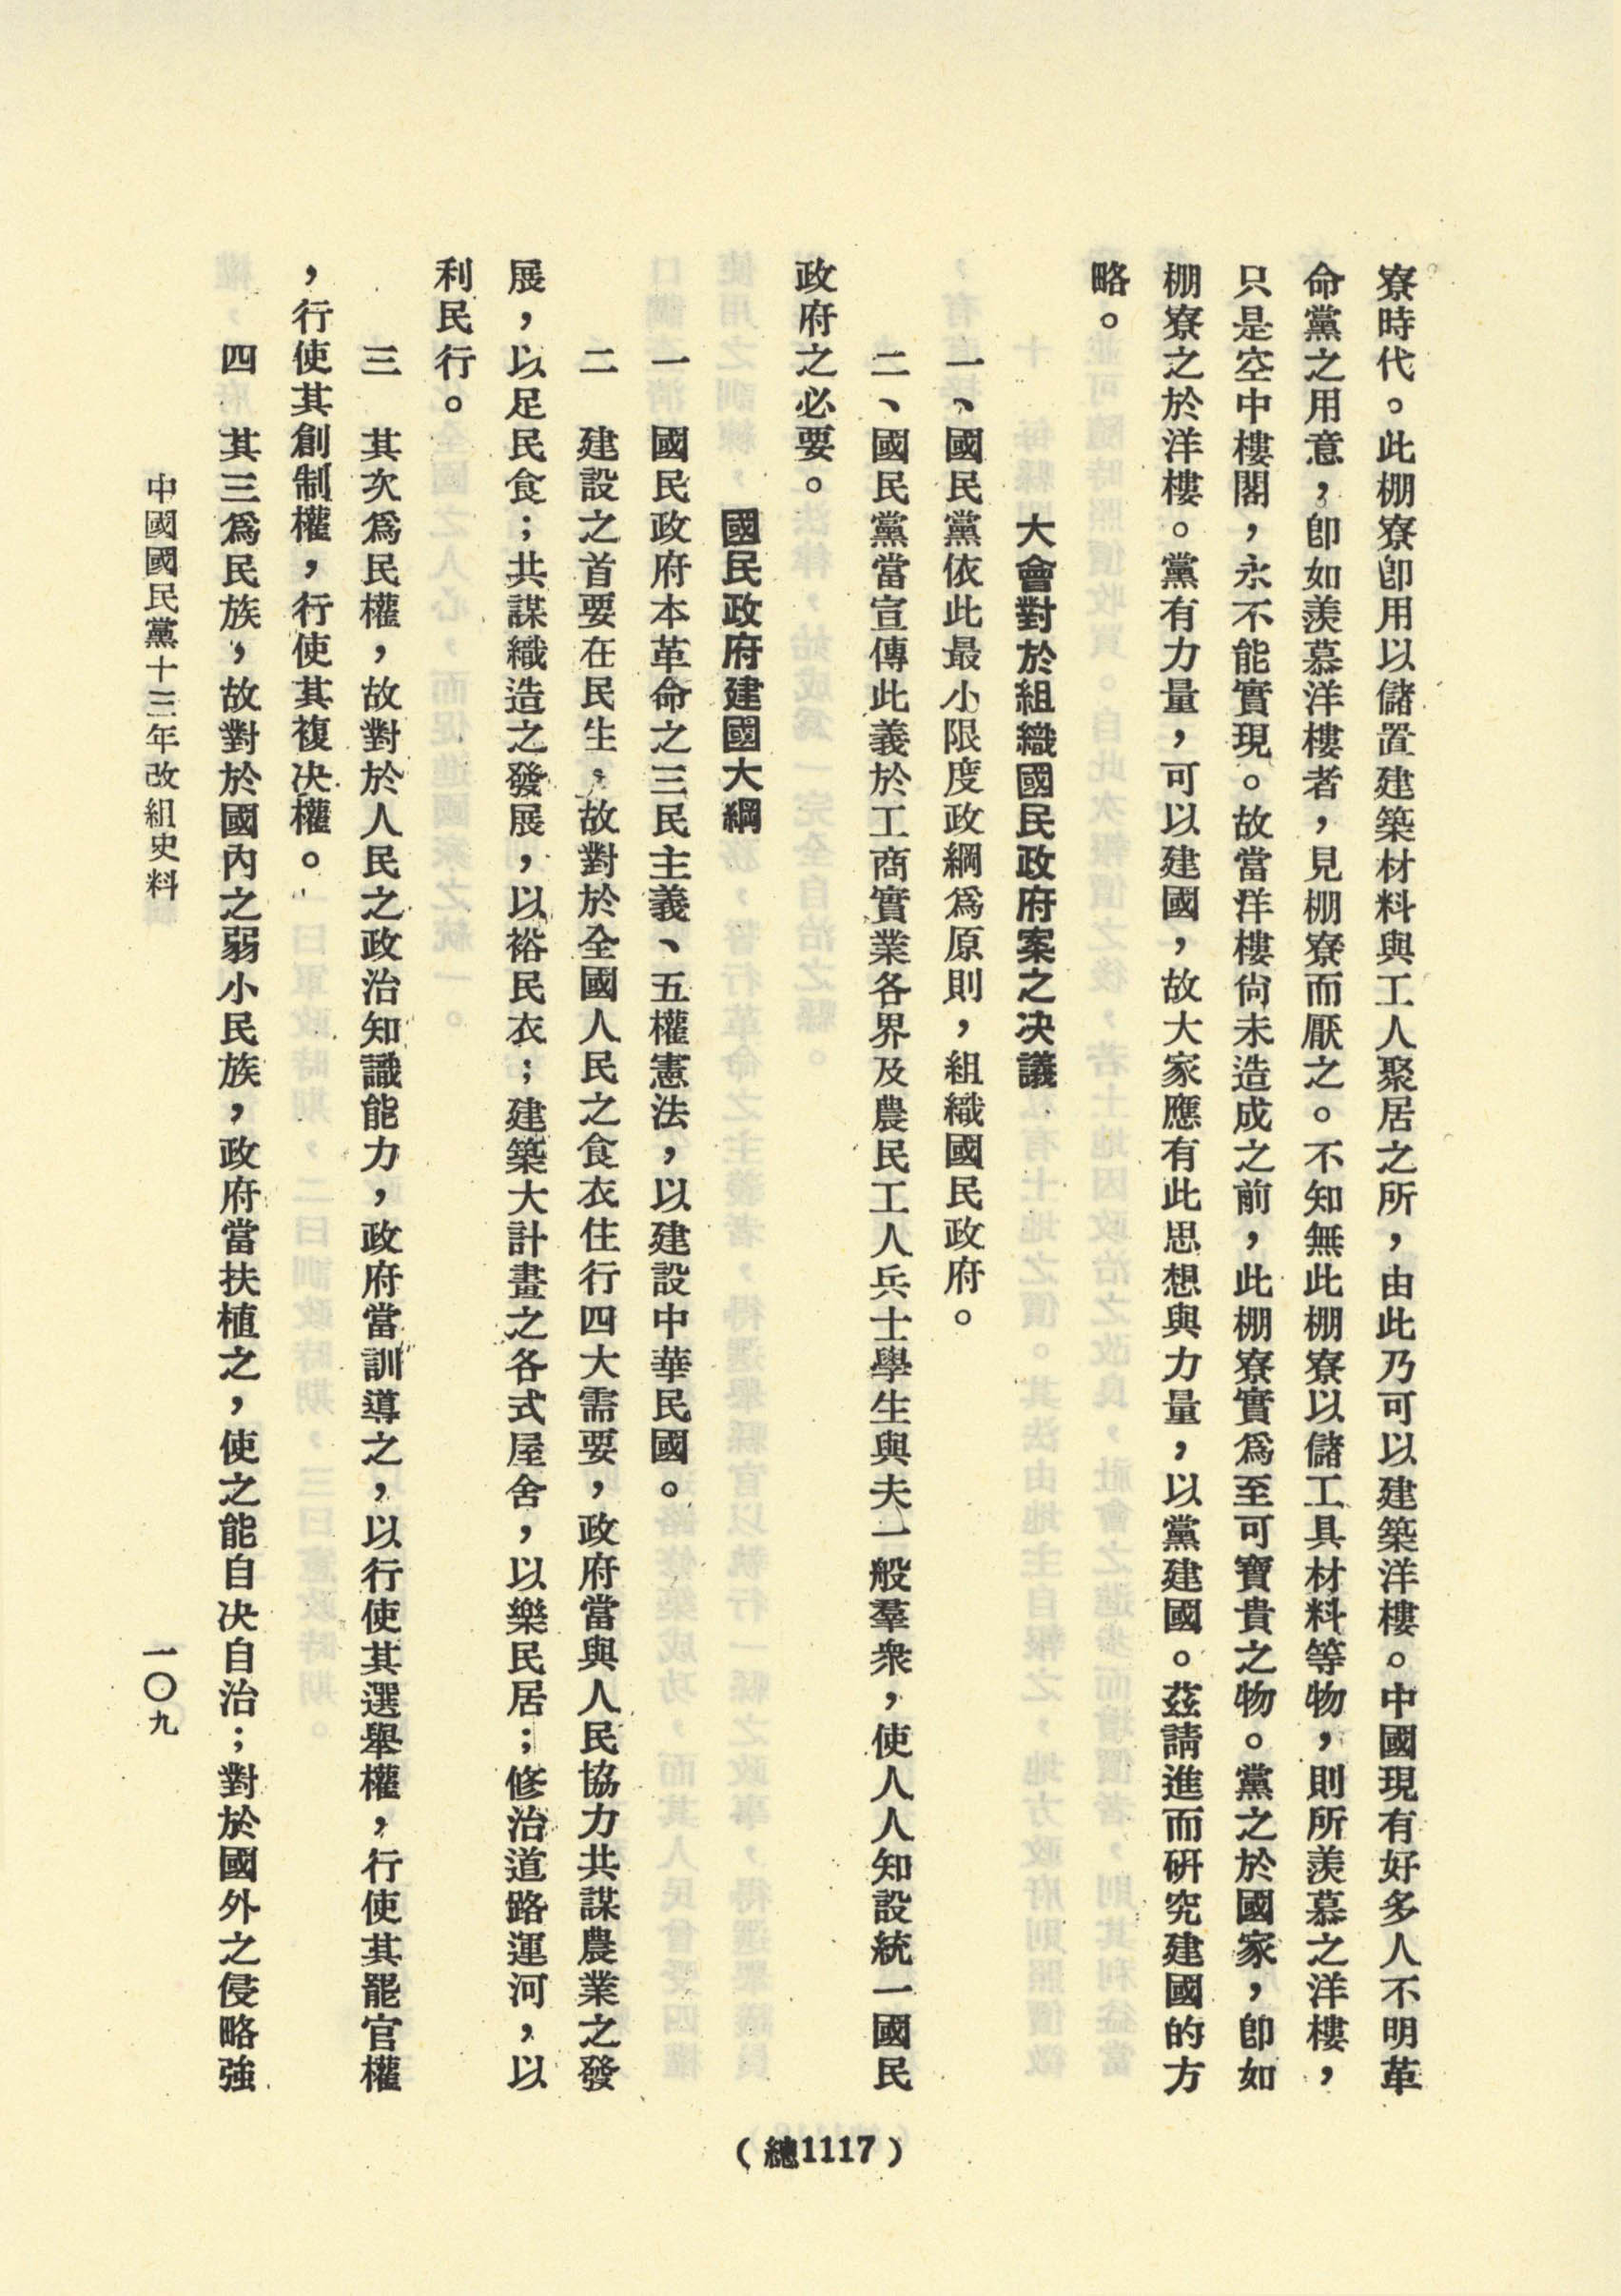 寮時代。此棚寮卽用以儲置建築材料與工人聚居之所，由此乃可以建築洋樓。中國現有好多人不明革
命黨之用意，卽如羨慕洋樓者，見棚寮而厭之。不知無此棚寮以儲工具材料等物，則所羨慕之洋樓，
只是空中樓閣，永不能實現。故當洋樓尙未造成之前，此棚寮實爲至可寶貴之物。黨之於國家，卽如
棚寮之於洋樓。黨有力量，可以建國，故大家應有此思想與力量，以黨建國。茲請進而硏究建國的方
略。
大會對於組織國民政府案之決議
一、國民黨依此最小限度政綱爲原則，組織國民政府。
二、國民黨當宣傳此義於工商實業各界及農民工人兵士學生與夫一般羣衆，使人人知設統一國民
政府之必要。
國民政府建國大綱
一　國民政府本革命之三民主義、五權憲法，以建設中華民國。
二　建設之首要在民生，故對於全國人民之食衣住行四大需要，政府當與人民協力共謀農業之發
展，以足民食；共謀織造之發展，以裕民衣；建築大計畫之各式屋舍，以樂民居；修治道路運河，以
利民行。
三　其次爲民權，故對於人民之政治知識能力，政府當訓導之，以行使其選舉權，行使其罷官權
，行使其創制權，行使其複決權。
四　其三爲民族，故對於國內之弱小民族，政府當扶植之，使之能自決自治；對於國外之侵略強
中國國民黨十三年改組史料
一〇九
（總1117）